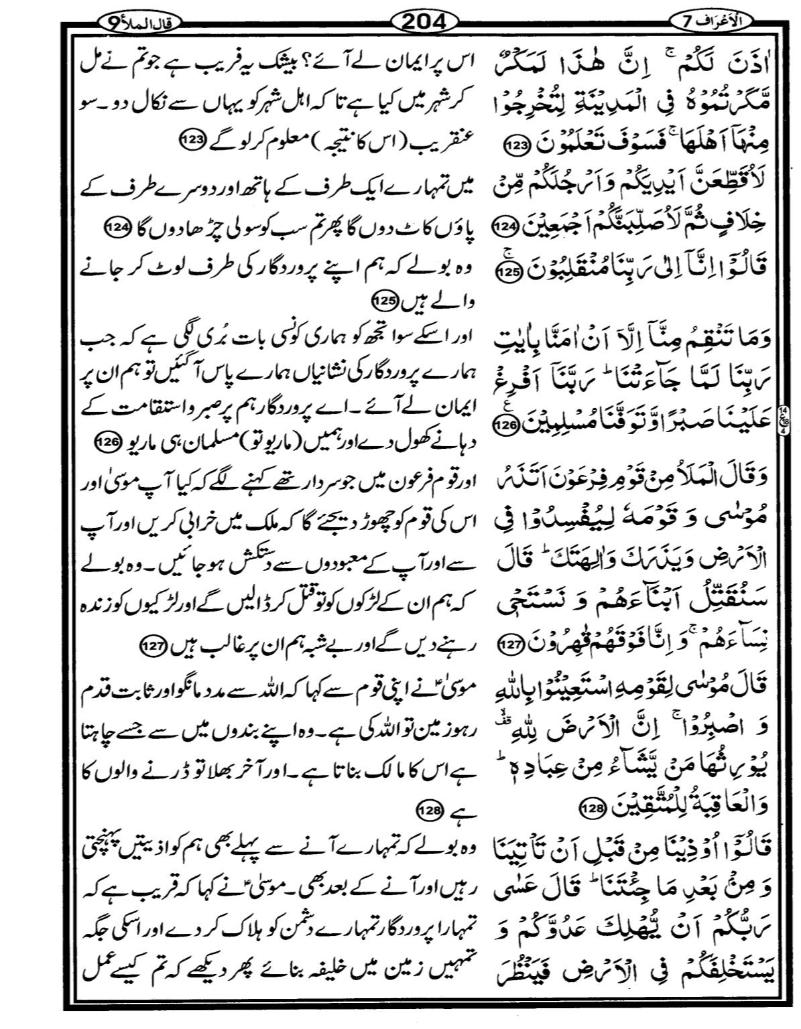 الاعراف 7
204
قال الملأ 9
اٰذَنَ لَكُمْ ۚ اِنَّ هٰذَا لَمَكْرٌ
مَّكَرْتُمُوْهُ فِى الْمَدِيْنَةِ لِتُخْرِجُوْا
مِنْهَآ اَهْلَهَا ۚ فَسَوْفَ تَعْلَمُوْنَ 123
لَاُقَطِّعَنَّ اَيْدِيَكُمْ وَاَرْجُلَكُمْ مِّنْ
خِلَافٍ ثُمَّ لَاُصَلِّبَنَّكُمْ اَجْمَعِيْنَ 124
قَالُوْٓا اِنَّآ اِلٰى رَبِّنَا مُنْقَلِبُوْنَ ۚ 125
وَمَا تَنْقِمُ مِنَّآ اِلَّآ اَنْ اٰمَنَّا بِاٰيٰتِ
رَبِّنَا لَمَّا جَآءَتْنَا ؕ رَبَّنَآ اَفْرِغْ
عَلَيْنَا صَبْرًا وَّتَوَفَّنَا مُسْلِمِيْنَ 126
وَقَالَ الْمَلَاُ مِنْ قَوْمِ فِرْعَوْنَ اَتَذَرُ
مُوْسٰى وَ قَوْمَهٗ لِيُفْسِدُوْا فِى
الْاَرْضِ وَيَذَرَكَ وَاٰلِهَتَكَ ؕ قَالَ
سَنُقَتِّلُ اَبْنَآءَهُمْ وَ نَسْتَحْىٖ
نِسَآءَهُمْ ۚ وَاِنَّا فَوْقَهُمْ قٰهِرُوْنَ 127
قَالَ مُوْسٰى لِقَوْمِهِ اسْتَعِيْنُوْا بِاللّٰهِ
وَ اصْبِرُوْا ۚ اِنَّ الْاَرْضَ لِلّٰهِ ۙ
يُوْرِثُهَا مَنْ يَّشَآءُ مِنْ عِبَادِهٖ ؕ
وَالْعَاقِبَةُ لِلْمُتَّقِيْنَ 128
قَالُوْٓا اُوْذِيْنَا مِنْ قَبْلِ اَنْ تَاْتِيَنَا
وَ مِنْۢ بَعْدِ مَا جِئْتَنَا ؕ قَالَ عَسٰى
رَبُّكُمْ اَنْ يُّهْلِكَ عَدُوَّكُمْ وَ
يَسْتَخْلِفَكُمْ فِى الْاَرْضِ فَيَنْظُرَ
اس پر ایمان لے آئے؟ بیشک یہ فریب ہے جو تم نے مل
کر شہر میں کیا ہے تا کہ اہل شہر کو یہاں سے نکال دو۔ سو
عنقریب (اس کا نتیجہ) معلوم کر لو گے 123
میں تمہارے ایک طرف کے ہاتھ اور دوسرے طرف کے
پاؤں کاٹ دوں گا پھر تم سب کو سولی چڑھا دوں گا 124
وہ بولے کہ ہم اپنے پروردگار کی طرف لوٹ کر جانے
والے ہیں 125
اور اسکے سوا تجھ کو ہماری کونسی بات بُری لگی ہے کہ جب
ہمارے پروردگار کی نشانیاں ہمارے پاس آ گئیں تو ہم ان پر
ایمان لے آئے۔ اے پروردگار ہم پر صبر و استقامت کے
دہانے کھول دے اور ہمیں (ماریو تو) مسلمان ہی ماریو 126
اور قوم فرعون میں جو سردار تھے کہنے لگے کہ کیا آپ موسیٰ اور
اس کی قوم کو چھوڑ دیجئے گا کہ ملک میں خرابی کریں اور آپ
سے اور آپ کے معبودوں سے دستکش ہو جائیں۔ وہ بولے
کہ ہم ان کے لڑکوں کو تو قتل کر ڈالیں گے اور لڑکیوں کو زندہ
رہنے دیں گے اور بے شبہ ہم ان پر غالب ہیں 127
موسیٰؑ نے اپنی قوم سے کہا کہ اللہ سے مدد مانگو اور ثابت قدم
رہو زمین تو اللہ کی ہے۔ وہ اپنے بندوں میں سے جسے چاہتا
ہے اس کا مالک بناتا ہے۔ اور آخر بھلا تو ڈرنے والوں کا
ہے 128
وہ بولے کہ تمہارے آنے سے پہلے بھی ہم کو اذیتیں پہنچتی
رہیں اور آنے کے بعد بھی۔ موسیٰؑ نے کہا کہ قریب ہے کہ
تمہارا پروردگار تمہارے دشمن کو ہلاک کر دے اور اسکی جگہ
تمہیں زمین میں خلیفہ بنائے پھر دیکھے کہ تم کیسے عمل